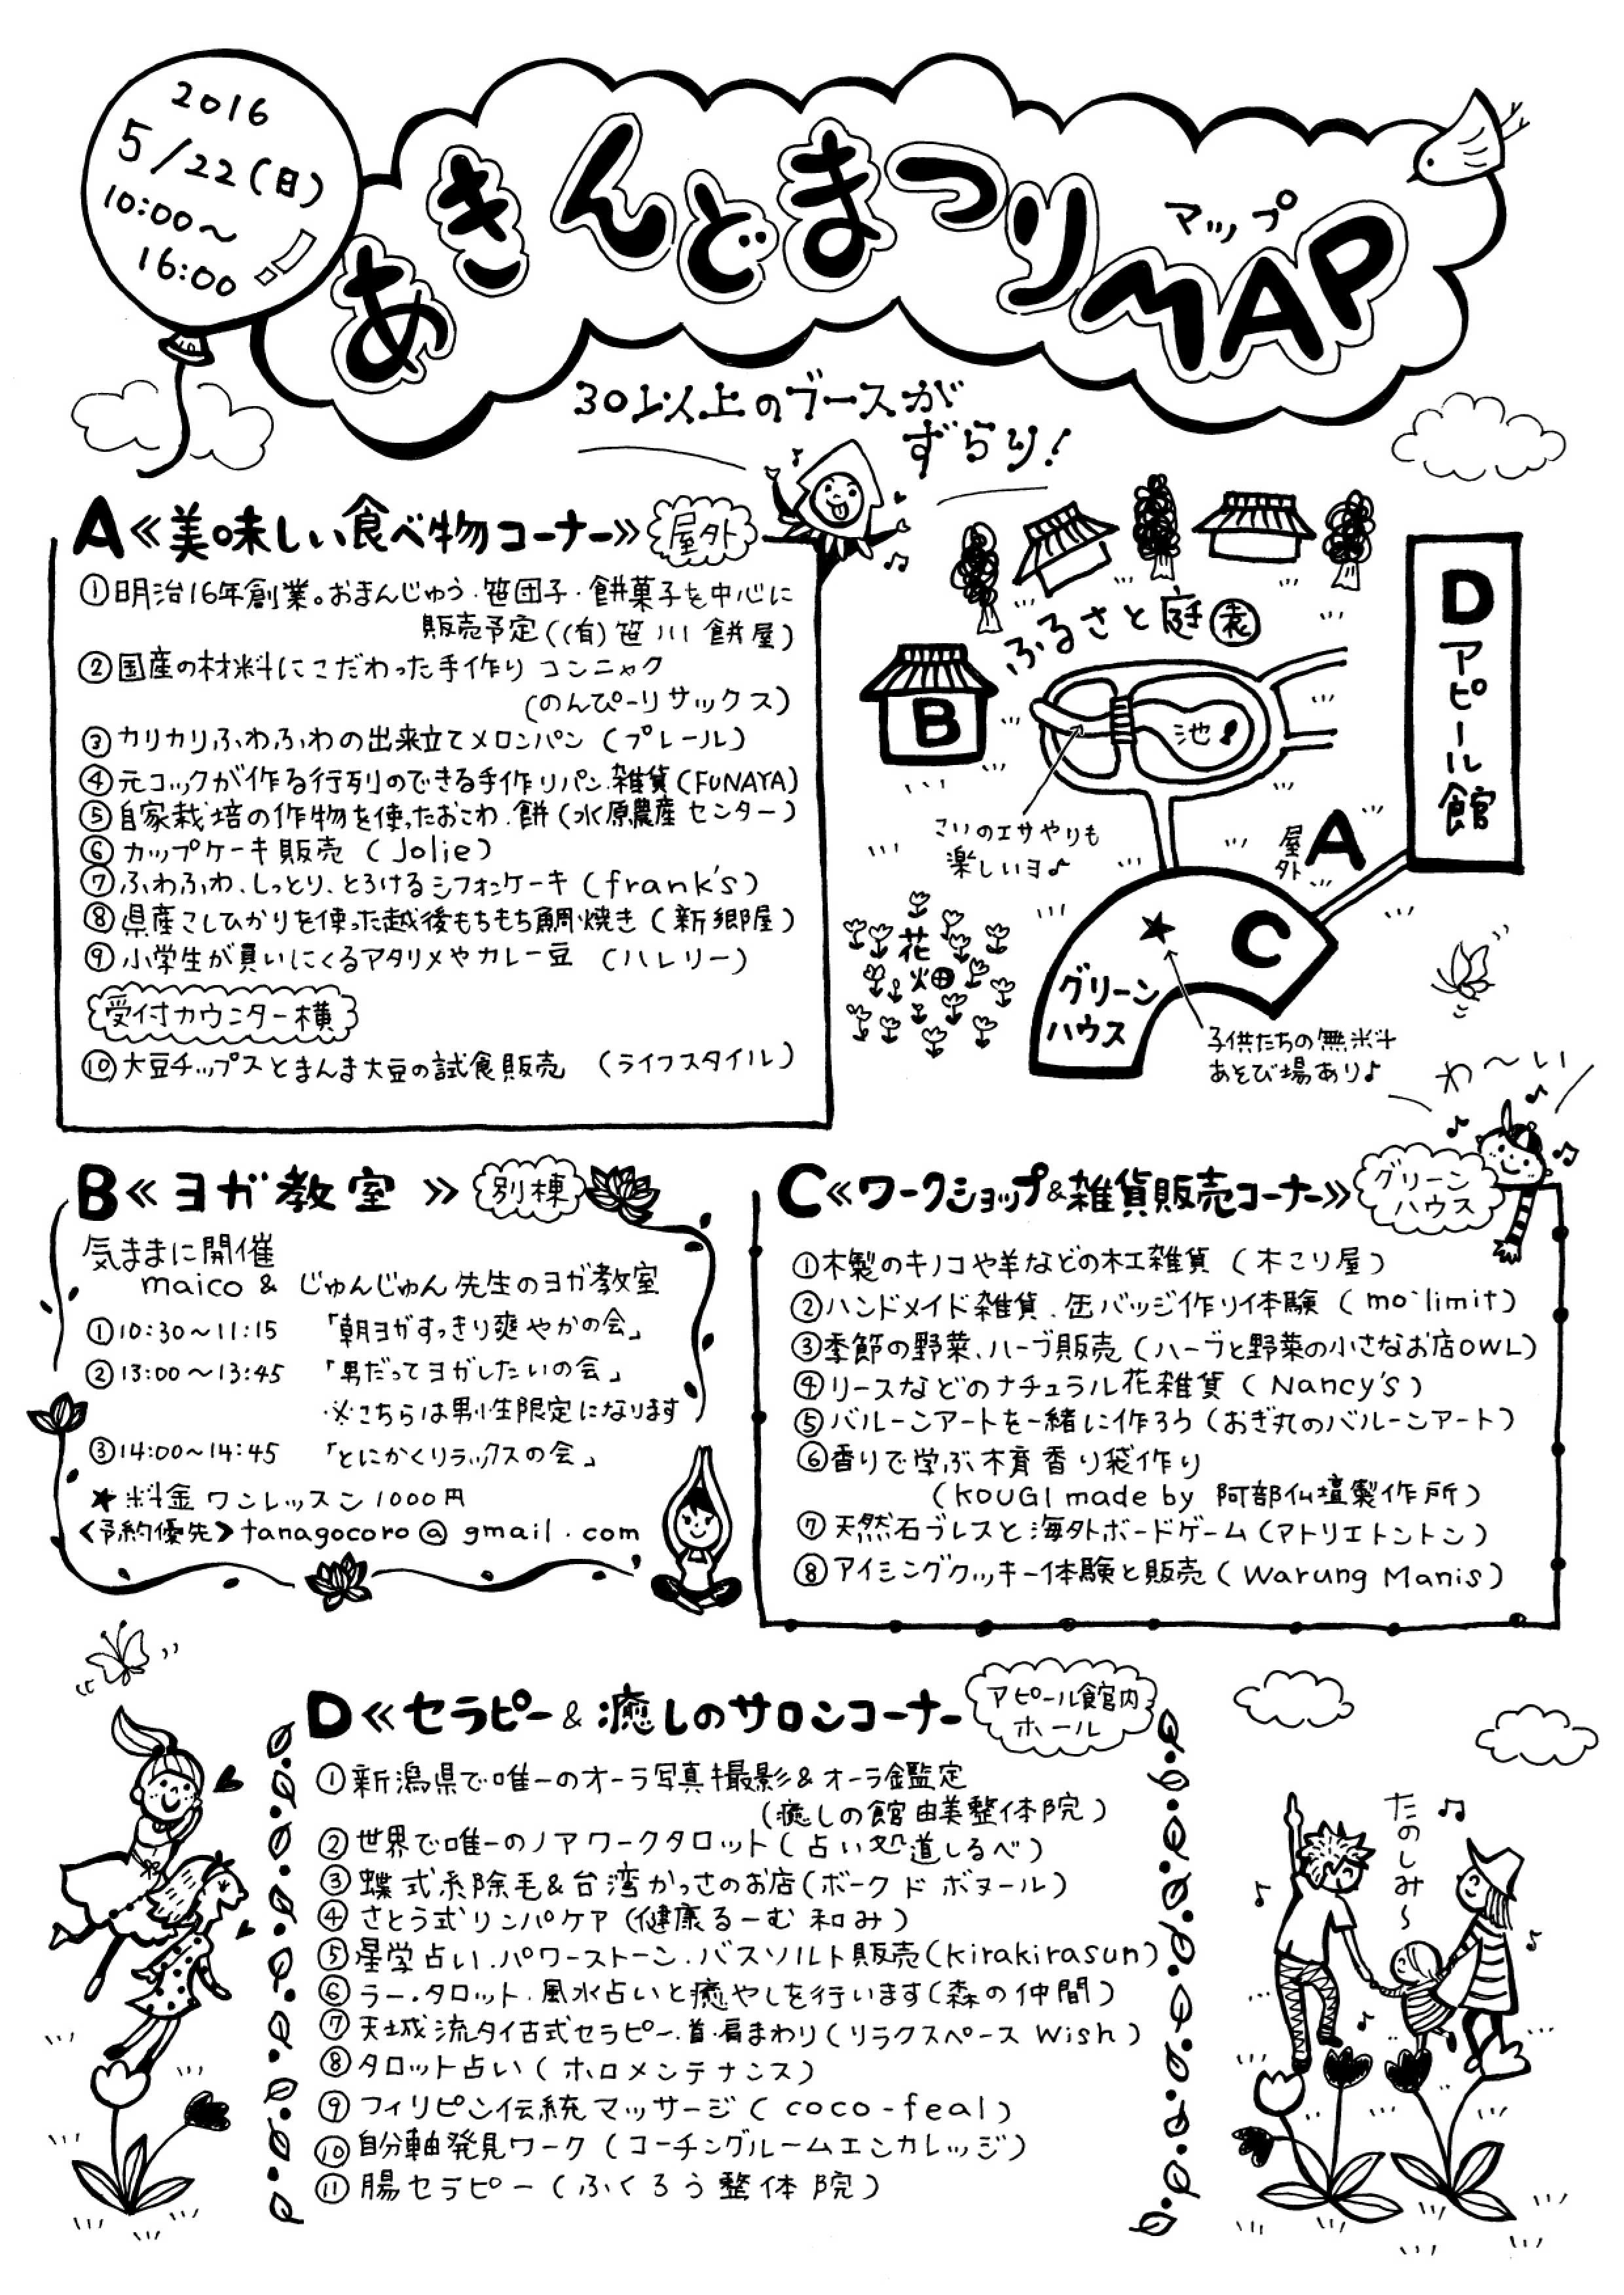 2016
5/22(日)
10:00~
16:00!
あきんどまつりMAP
マップ
30以上のブースが
ずらり!
A≪美味しい食べ物コーナー≫ 屋外
①明治16年創業。おまんじゅう・笹団子・餅菓子を中心に
販売予定((有)笹川餅屋)
②国産の材料にこだわった手作りコンニャク
(のんぴーりサックス)
③カリカリふわふわの出来立てメロンパン(プレール)
④元コックが作る行列のできる手作りパン.雑貨(FUNAYA)
⑤自家栽培の作物を使ったおこわ.餅(水原農産センター)
⑥カップケーキ販売(Jolie)
⑦ふわふわ、しっとり、とろけるシフォンケーキ(frank's)
⑧県産こしひかりを使った越後もちもち鯛焼き(新郷屋)
⑨小学生が買いにくるアタリメやカレー豆(ハレリー)
受付カウンター横
⑩大豆チップスとまんま大豆の試食販売(ライフスタイル)
ふるさと庭園
B
池
こいのエサやりも
楽しいヨ♪
D アピール館
A 屋外
花畑
C
グリーン
ハウス
子供たちの無料
あそび場あり♪
わ~い
B≪ヨガ教室≫ 別棟
気ままに開催
maico & じゅんじゅん先生のヨガ教室
①10:30~11:15 「朝ヨガすっきり爽やかの会」
②13:00~13:45 「男だってヨガしたいの会」
※こちらは男性限定になります
③14:00~14:45 「とにかくリラックスの会」
★料金 ワンレッスン1000円
<予約優先>tanagocoro@gmail.com
C≪ワークショップ&雑貨販売コーナー≫ グリーンハウス
①木製のキノコや羊などの木工雑貨(木こり屋)
②ハンドメイド雑貨.缶バッジ作り体験(mo'limit)
③季節の野菜、ハーブ販売(ハーブと野菜の小さなお店OWL)
④リースなどのナチュラル花雑貨(Nancy's)
⑤バルーンアートを一緒に作ろう(おぎ丸のバルーンアート)
⑥香りで学ぶ木育香り袋作り
(KOUGI made by 阿部仏壇製作所)
⑦天然石ブレスと海外ボードゲーム(アトリエトントン)
⑧アイシングクッキー体験と販売(Warung Manis)
D≪セラピー&癒しのサロンコーナー アピール館内ホール
①新潟県で唯一のオーラ写真撮影&オーラ鑑定
(癒しの館 由美整体院)
②世界で唯一のノアワークタロット(占い処道しるべ)
③蝶式糸除毛&台湾かっさのお店(ボーク ド ボヌール)
④さとう式リンパケア(健康るーむ 和み)
⑤星学占い.パワーストーン.バスソルト販売(kirakirasun)
⑥ラー.タロット.風水占いと癒やしを行います(森の仲間)
⑦天城流タイ古式セラピー.首.肩まわり(リラクスペース Wish)
⑧タロット占い(ホロメンテナンス)
⑨フィリピン伝統マッサージ(coco-feal)
⑩自分軸発見ワーク(コーチングルームエンカレッジ)
⑪腸セラピー(ふくろう整体院)
たのしみ~